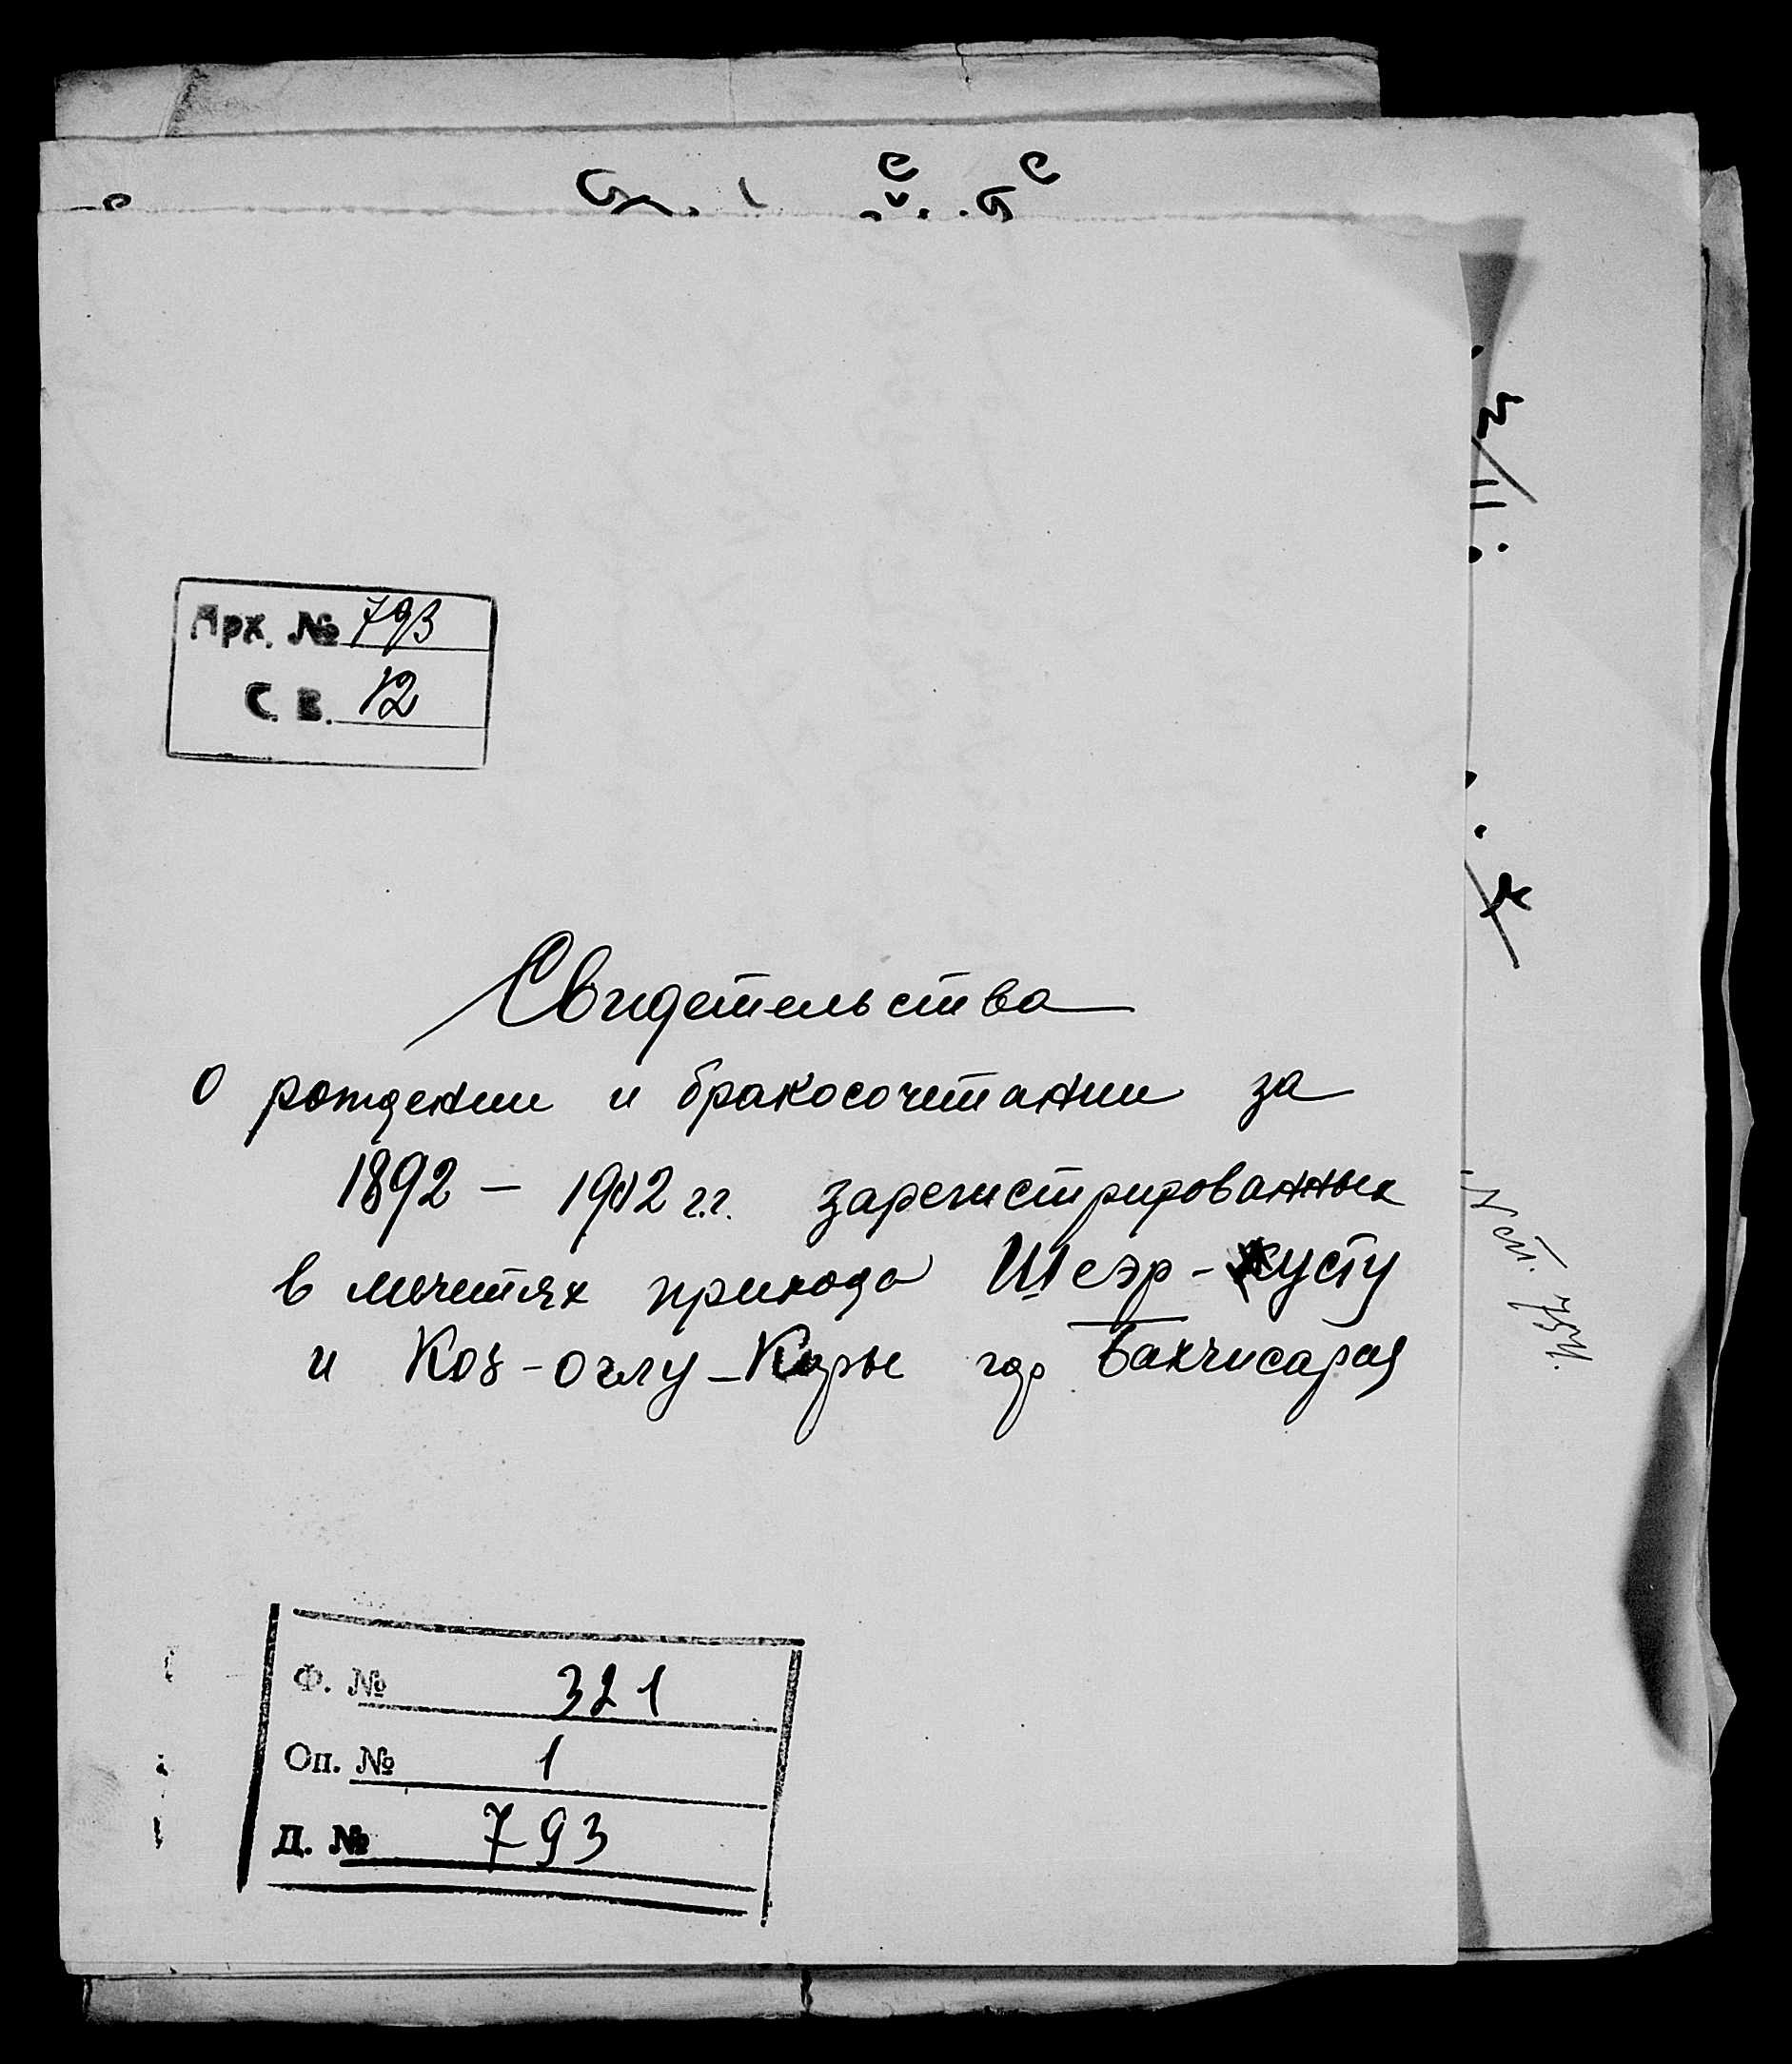 Арх. № 793
С. в. 12
Свидетельства
о рождении и бракосочетании за
1892 – 1912 г.г. зарегистрированных
в мечетях прихода Шеэр-хусту
и Коз-оглу-Кары гор. Бахчисарая
Ф. № 321
Оп. № 1
Д. № 793